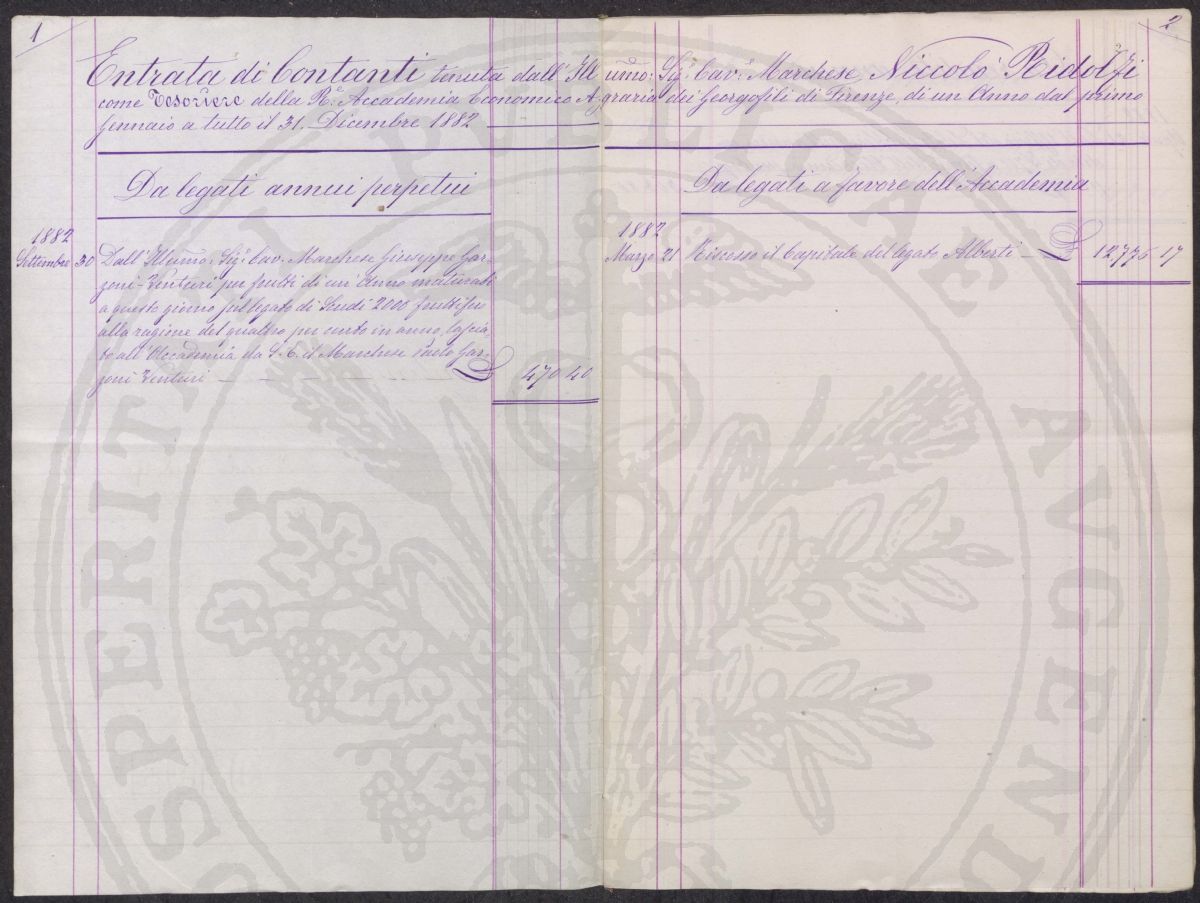 1
2
Entrata di Contanti tenuta dall'Illmo: Sigr. Cav.e Marchese Niccolò Ridolfi
come Tesoriere della R.e Accademia Economico Agraria dei Georgofili di Firenze, di un Anno dal primo
Gennaio a tutto il 31. Dicembre 1882
Da legati annui perpetui
1882
Settembre 30 Dall'Illmo: Sigr. Cav. Marchese Giuseppe Gar-
zoni-Venturi per frutti di un Anno maturati
a questo giorno pel legato di Scudi 2000 fruttiferi
alla ragione del quattro per cento in anno, lascia-
to all'Accademia da S. E. il Marchese Paolo Gar-
zoni Venturi £ 470 40
Da legati a favore dell'Accademia
1882
Marzo 21 Riscosso il Capitale del legato Alberti £ 12,775 17
PROSPERITATI PUBLICAE AUGENDAE